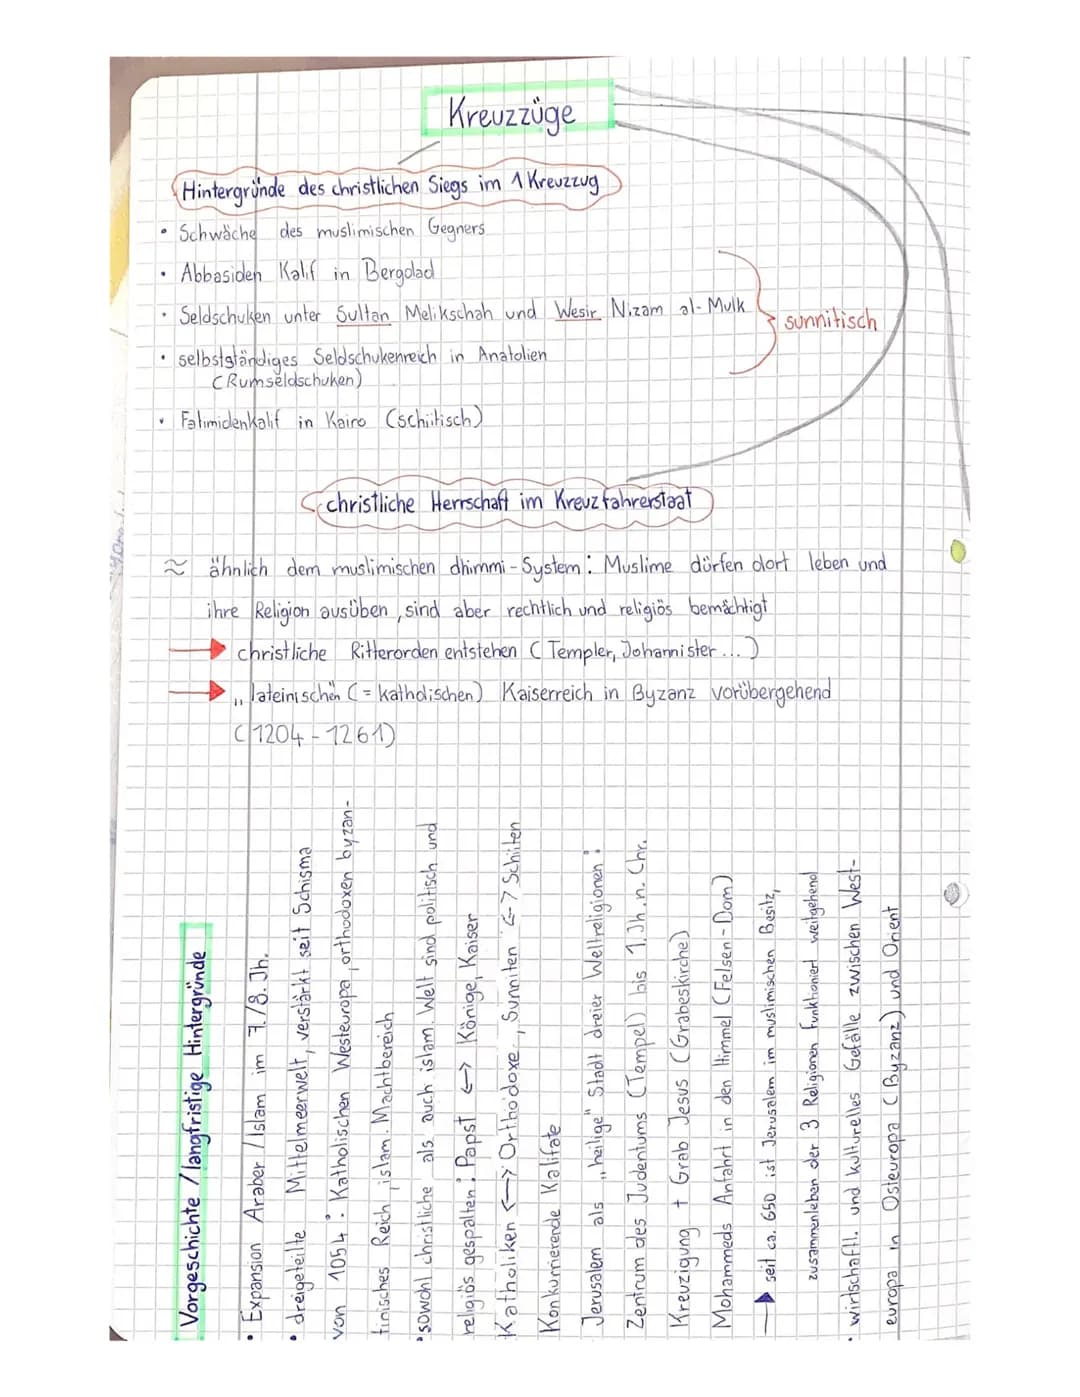 Kreuzzüge
Hintergründe des christlichen Siegs im 1 Kreuzzug
• Schwäche des muslimischen Gegners
• Abbasiden Kalif in Bergdad
• Seldschuken unter Sultan Melikschah und Wesir Nizam al-Mulk
sunnitisch
• selbstständiges Seldschukenreich in Anatolien
(Rumseldschuken)
• Fatimidenkalif in Kairo (schiitisch)
christliche Herrschaft im Kreuzfahrerstaat
≈ ähnlich dem muslimischen dhimmi-System: Muslime dürfen dort leben und
ihre Religion ausüben, sind aber rechtlich und religiös bemächtigt
→ christliche Ritterorden entstehen (Templer, Johannister ...)
→ „lateinischen (= katholischen) Kaiserreich in Byzanz vorübergehend
(1204 - 1261)
Vorgeschichte / langfristige Hintergründe
• Expansion Araber / Islam im 7./8. Jh.
• dreigeteilte Mittelmeerwelt, verstärkt seit Schisma
von 1054: Katholischen Westeuropa, orthodoxen byzan-
tinisches Reich, islam. Machtbereich
• sowohl christliche als auch islam. Welt sind politisch und
religiös gespalten: Papst <-> Könige, Kaiser
Katholiken <-> Orthodoxe, Sunniten <-7 Schiiten
Konkurrierende Kalifate
Jerusalem als „heilige" Stadt dreier Weltreligionen:
Zentrum des Judeniums (Tempel) bis 1. Jh. n. Chr.
Kreuzigung + Grab Jesus (Grabeskirche)
Mohammeds Anfahrt in den Himmel (Felsen-Dom)
→ seit ca. 650 ist Jerusalem im muslimischen Besitz,
zusammenleben der 3 Religionen funktioniert weitgehend
• wirtschaftl. und kulturelles Gefälle zwischen West-
europa in Osteuropa (Byzanz) und Orient